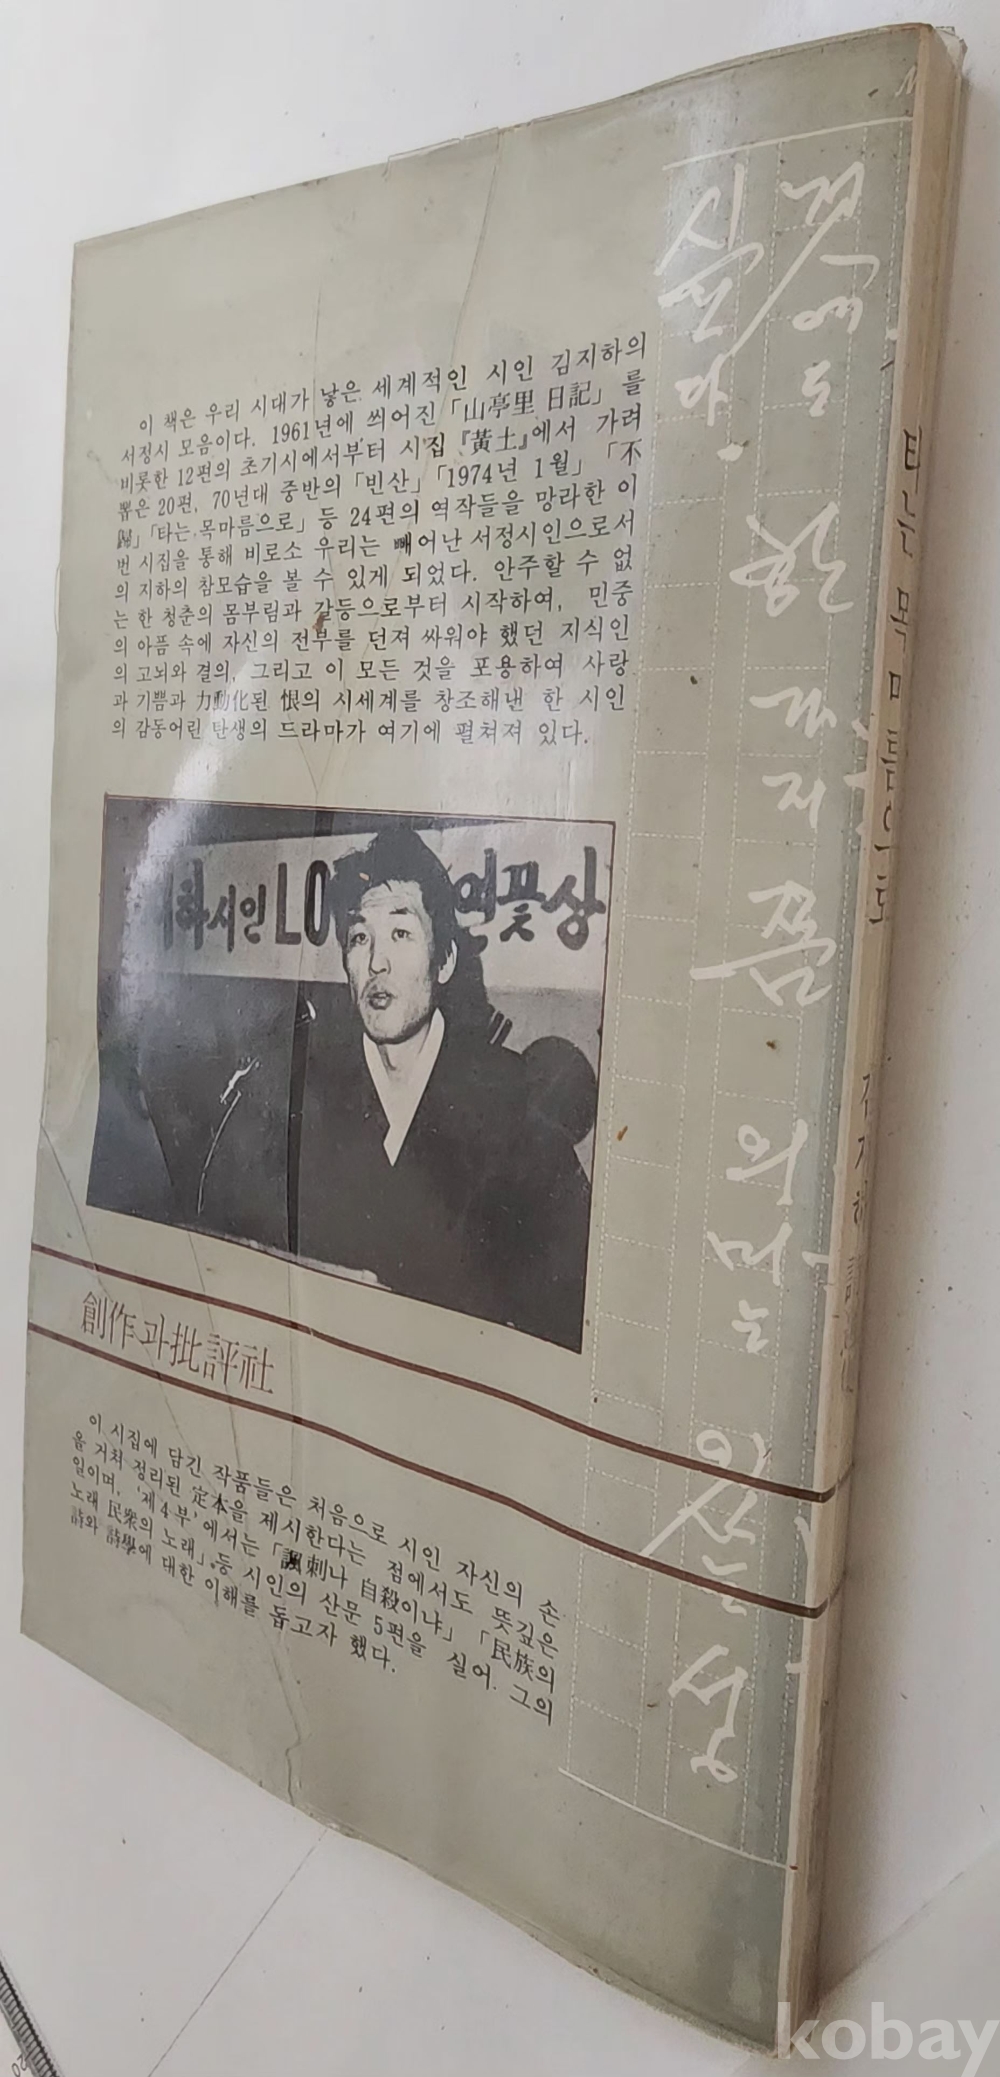 이 책은 우리 시대가 낳은 세계적인 시인 김지하의
서정시 모음이다. 1961년에 씌어진 「山亭里 日記」를
비롯한 12편의 초기시에서부터 시집 『黃土』에서 가려
뽑은 20편, 70년대 중반의 「빈산」 「1974년 1월」 「不
歸」 「타는 목마름으로」 등 24편의 역작들을 망라한 이
번 시집을 통해 비로소 우리는 빼어난 서정시인으로서
의 지하의 참모습을 볼 수 있게 되었다. 안주할 수 없
는 한 청춘의 몸부림과 갈등으로부터 시작하여, 민중
의 아픔 속에 자신의 전부를 던져 싸워야 했던 지식인
의 고뇌와 결의, 그리고 이 모든 것을 포용하여 사랑
과 기쁨과 力動化된 恨의 시세계를 창조해낸 한 시인
의 감동어린 탄생의 드라마가 여기에 펼쳐져 있다.
하시인 LO 연꽃상
創作과批評社
이 시집에 담긴 작품들은 처음으로 시인 자신의 손
을 거쳐 정리된 定本을 제시한다는 점에서도 뜻깊은
일이며, '제4부'에서는 「諷刺냐 自殺이냐」 「民族의
노래 民衆의 노래」 등 시인의 산문 5편을 실어 그의
詩와 詩學에 대한 이해를 돕고자 했다.
것에도
싶다.
한
의미는
있는
성
타는 목마름으로
김지하 詩選集
kobay